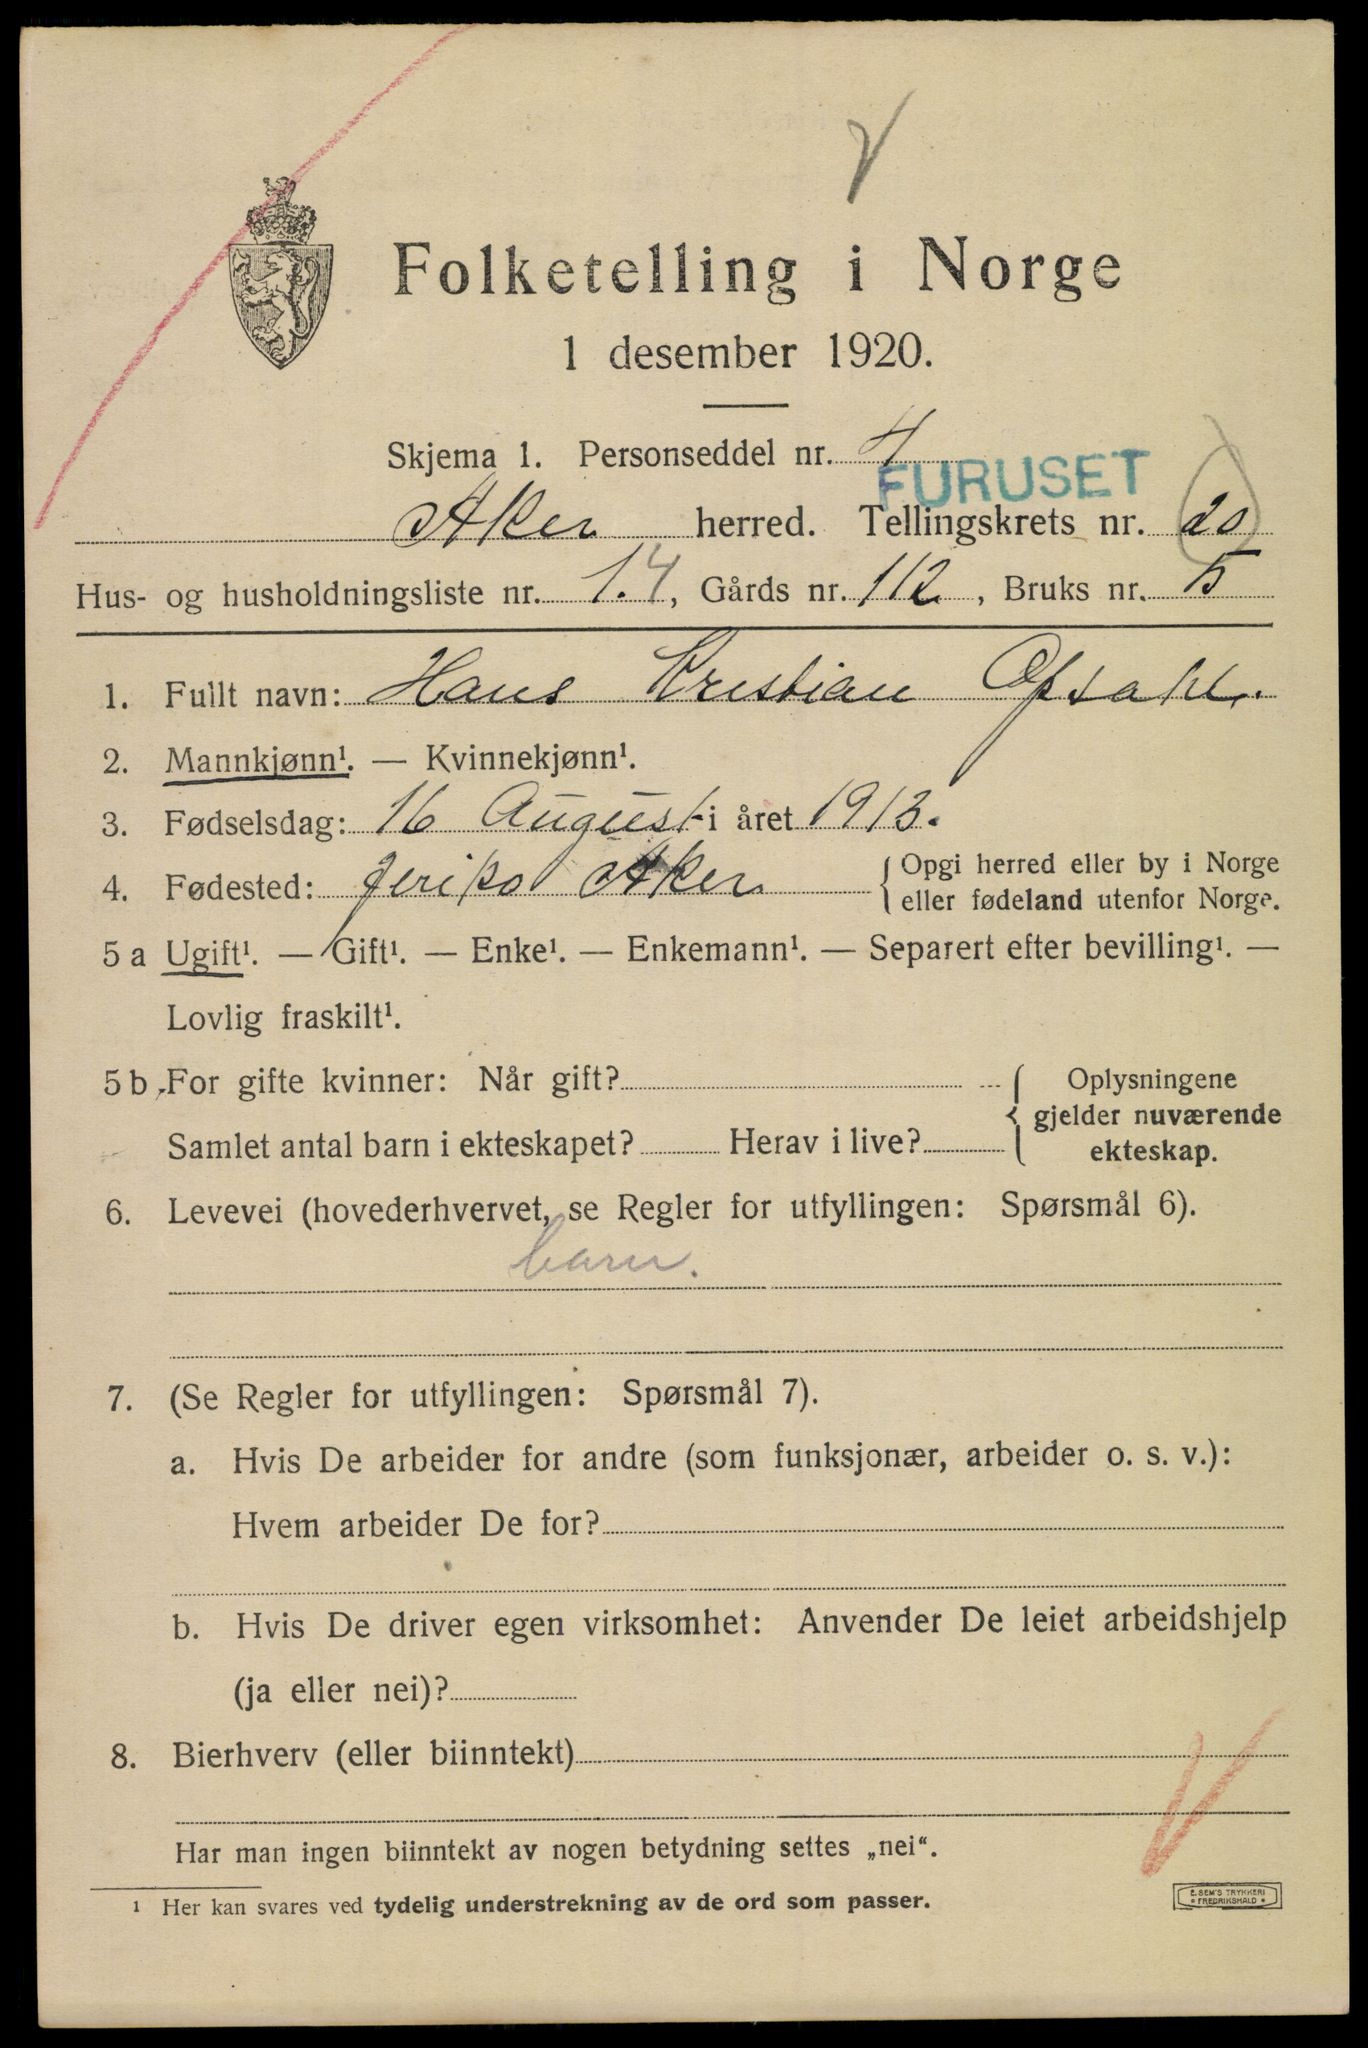 Folketelling i Norge
1 desember 1920.
Skjema 1. Personseddel nr. 4
FURUSET
Aker herred. Tellingskrets nr. 20
Hus- og husholdningsliste nr. 14, Gårds nr. 112, Bruks nr. 5
1. Fullt navn: Hans Kristian Opsahl.
2. Mannkjønn¹. — Kvinnekjønn¹.
3. Fødselsdag: 16 August i året 1913.
4. Fødested: Jeriko Aker { Opgi herred eller by i Norge
eller fødeland utenfor Norge.
5 a Ugift¹. — Gift¹. — Enke¹. — Enkemann¹. — Separert efter bevilling¹. —
Lovlig fraskilt¹.
5 b For gifte kvinner: Når gift? { Oplysningene
gjelder nuværende
Samlet antal barn i ekteskapet? Herav i live? ekteskap.
6. Levevei (hovederhvervet, se Regler for utfyllingen: Spørsmål 6).
barn.
7. (Se Regler for utfyllingen: Spørsmål 7).
a. Hvis De arbeider for andre (som funksjonær, arbeider o. s. v.):
Hvem arbeider De for?
b. Hvis De driver egen virksomhet: Anvender De leiet arbeidshjelp
(ja eller nei)?
8. Bierhverv (eller biinntekt)
Har man ingen biinntekt av nogen betydning settes „nei“.
¹ Her kan svares ved tydelig understrekning av de ord som passer.
E. SEM'S TRYKKERI
* FREDRIKSHALD *